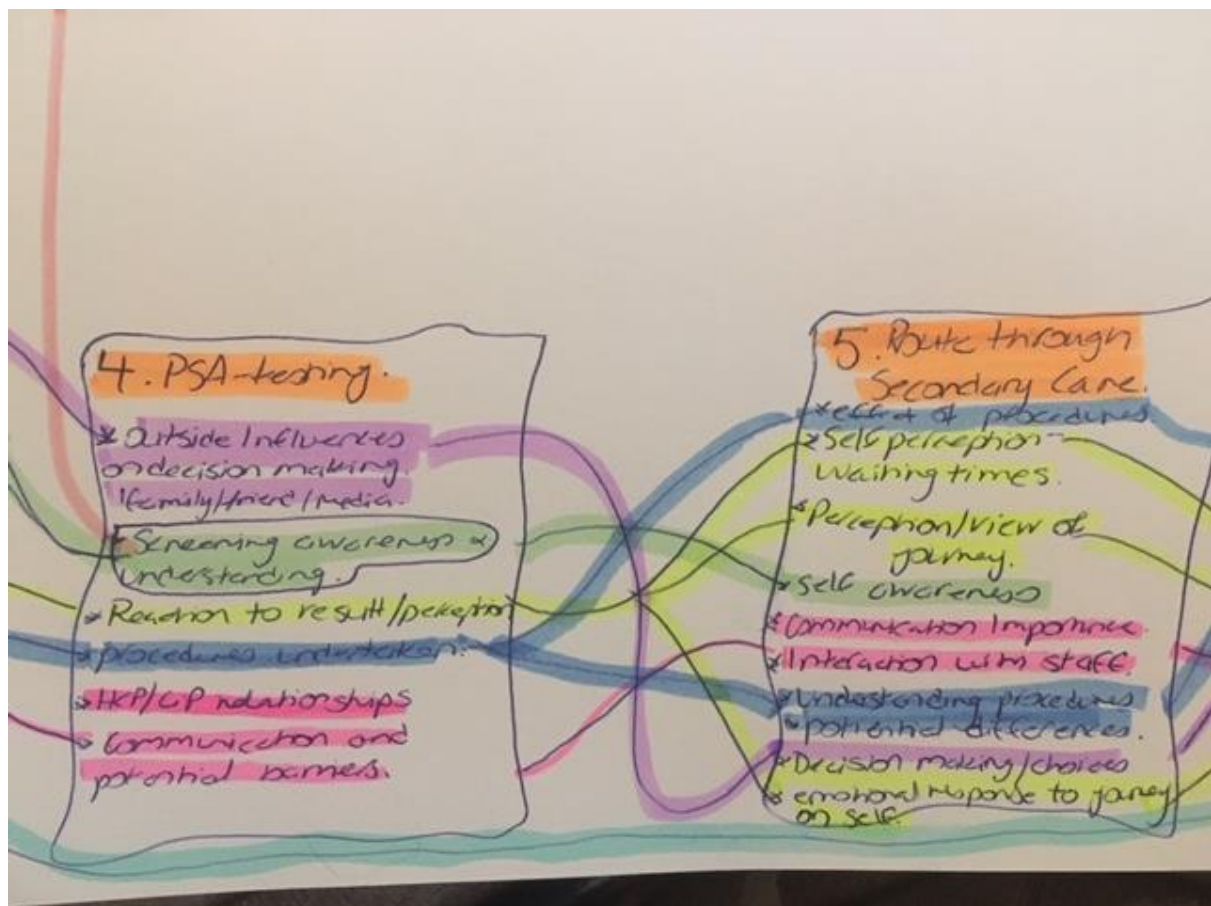 4. PSA-testing.
* Outside Influences
on decision making.
(family/friend/media.
* Screening awareness &
understanding.
* Reaction to result/perception
* procedures undertaken.
* HCP/GP relationships
* Communication and
potential barriers.
5. Route through
Secondary Care.
* effect of procedures
* Self perception -
Waiting times.
* Perception/view of
journey.
* Self awareness
* Communication Importance.
* Interaction with staff.
* Understanding procedures
* potential differences.
* Decision making/choices
* emotional response to journey
on self.